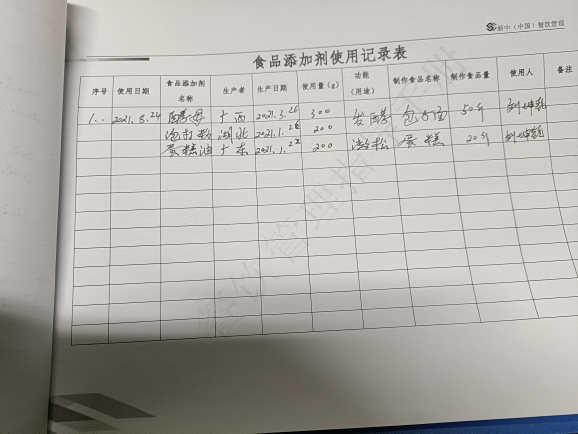 新中（中国）餐饮管理
食品添加剂使用记录表
序号 使用日期 食品添加剂名称 生产者 生产日期 使用量（g） 功能（用途） 制作食品名称 制作食品量 使用人 备注
1. 2021.8.24 酵母 广西 2021.3.26 300 发酵 包子面 50斤
泡打粉 湖北 2021.1.28 200
蛋糕油 广东 2021.1.22 200 蓬松 蛋糕 20斤
餐饮管理指导手册